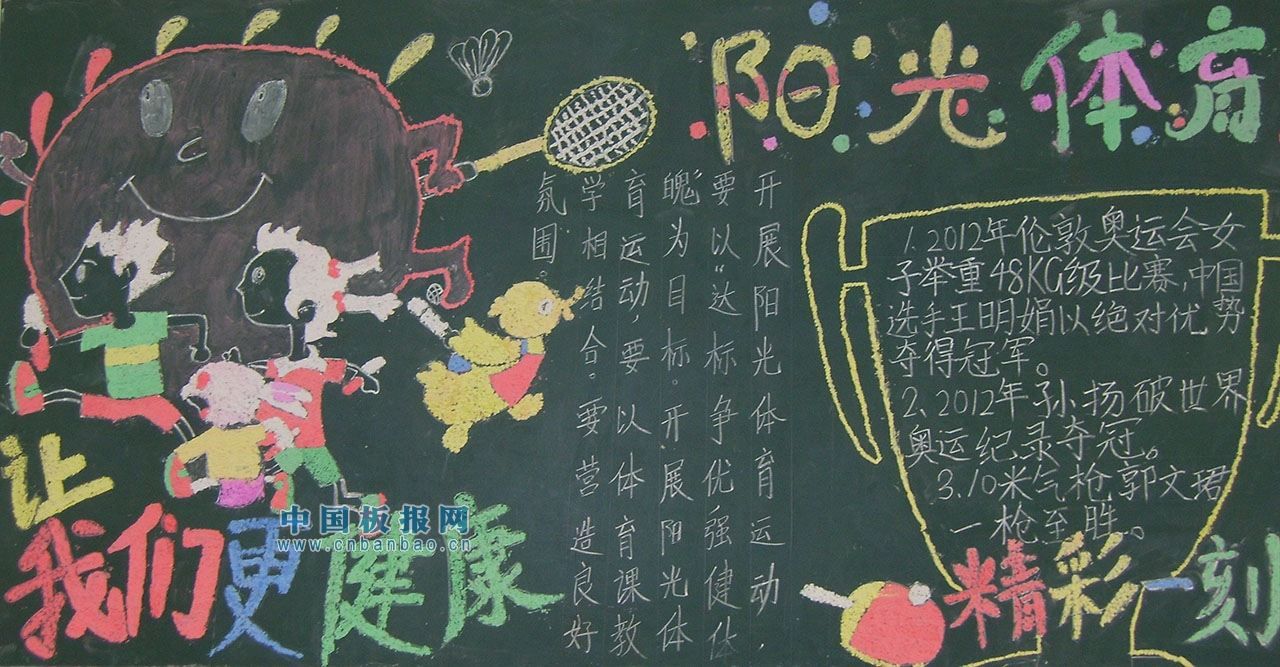 阳光体育
开展阳光体育运动,
要以“达标争优强健体
魄”为目标。开展阳光体
育运动,要以体育课教
学相结合。要营造良好
氛围。
1.2012年伦敦奥运会女
子举重48KG级比赛,中国
选手王明娟以绝对优势
夺得冠军。
2、2012年孙扬破世界
奥运纪录夺冠。
3.10米气枪郭文珺
一枪至胜。
精彩一刻
让
我们更健康
中国板报网
www.cnbanbao.cn